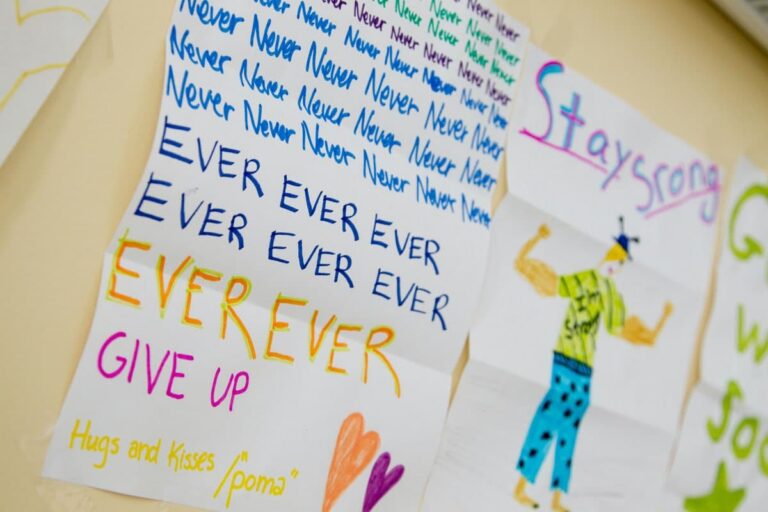 Never Never Never
Never Never Never Never
Never Never Never Never
Never Never Never Never Never Never
Never Never Never Never Never Never
Never Never Never Never Never Never
Never Never Never Never Never Never
EVER EVER EVER
EVER EVER EVER
EVER EVER
GIVE UP
Hugs and Kisses /"poma"
Stay srong
I'm
strong